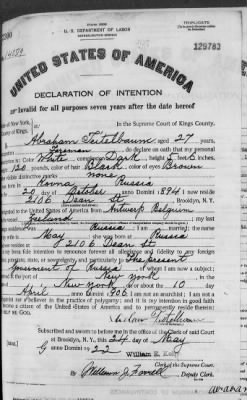 TRIPLICATE
U. S. DEPARTMENT OF LABOR
NATURALIZATION SERVICE
129783
UNITED STATES OF AMERICA
DECLARATION OF INTENTION
Invalid for all purposes seven years after the date hereof
of New York,
In the Supreme Court of Kings County.
of Kings,
Abraham Teitelbaum, aged 27 years,
do declare on oath that my personal
Color White, complexion Dark, height 5 feet 6 inches,
120 pounds, color of hair Black, color of eyes Brown
visible distinctive marks none
Russia
20 day of October, anno Domini 1894; I now reside
2106 Dean St, Brooklyn, N. Y.
to the United States of America from Antwerp Belgium
; my last
Russia; I am married; the name
is May; she was born at Russia
at 2106 Dean St
bona fide intention to renounce forever all allegiance and fidelity to any foreign
state, or sovereignty, and particularly to The present
Government of Russia, of whom I am now a subject;
the port of New York, in the
New York, on or about the 10 day
April, anno Domini 1906; I am not an anarchist; I am not a
nor a believer in the practice of polygamy; and it is my intention in good faith
become a citizen of the United States of America and to permanently reside therein:
HELP ME GOD.
Subscribed and sworn to before me in the office of the Clerk of said Court
at Brooklyn, N. Y., this 24 day of May
anno Domini 1922
William E. Kelly
Clerk of the Supreme Court.
By
Deputy Clerk.